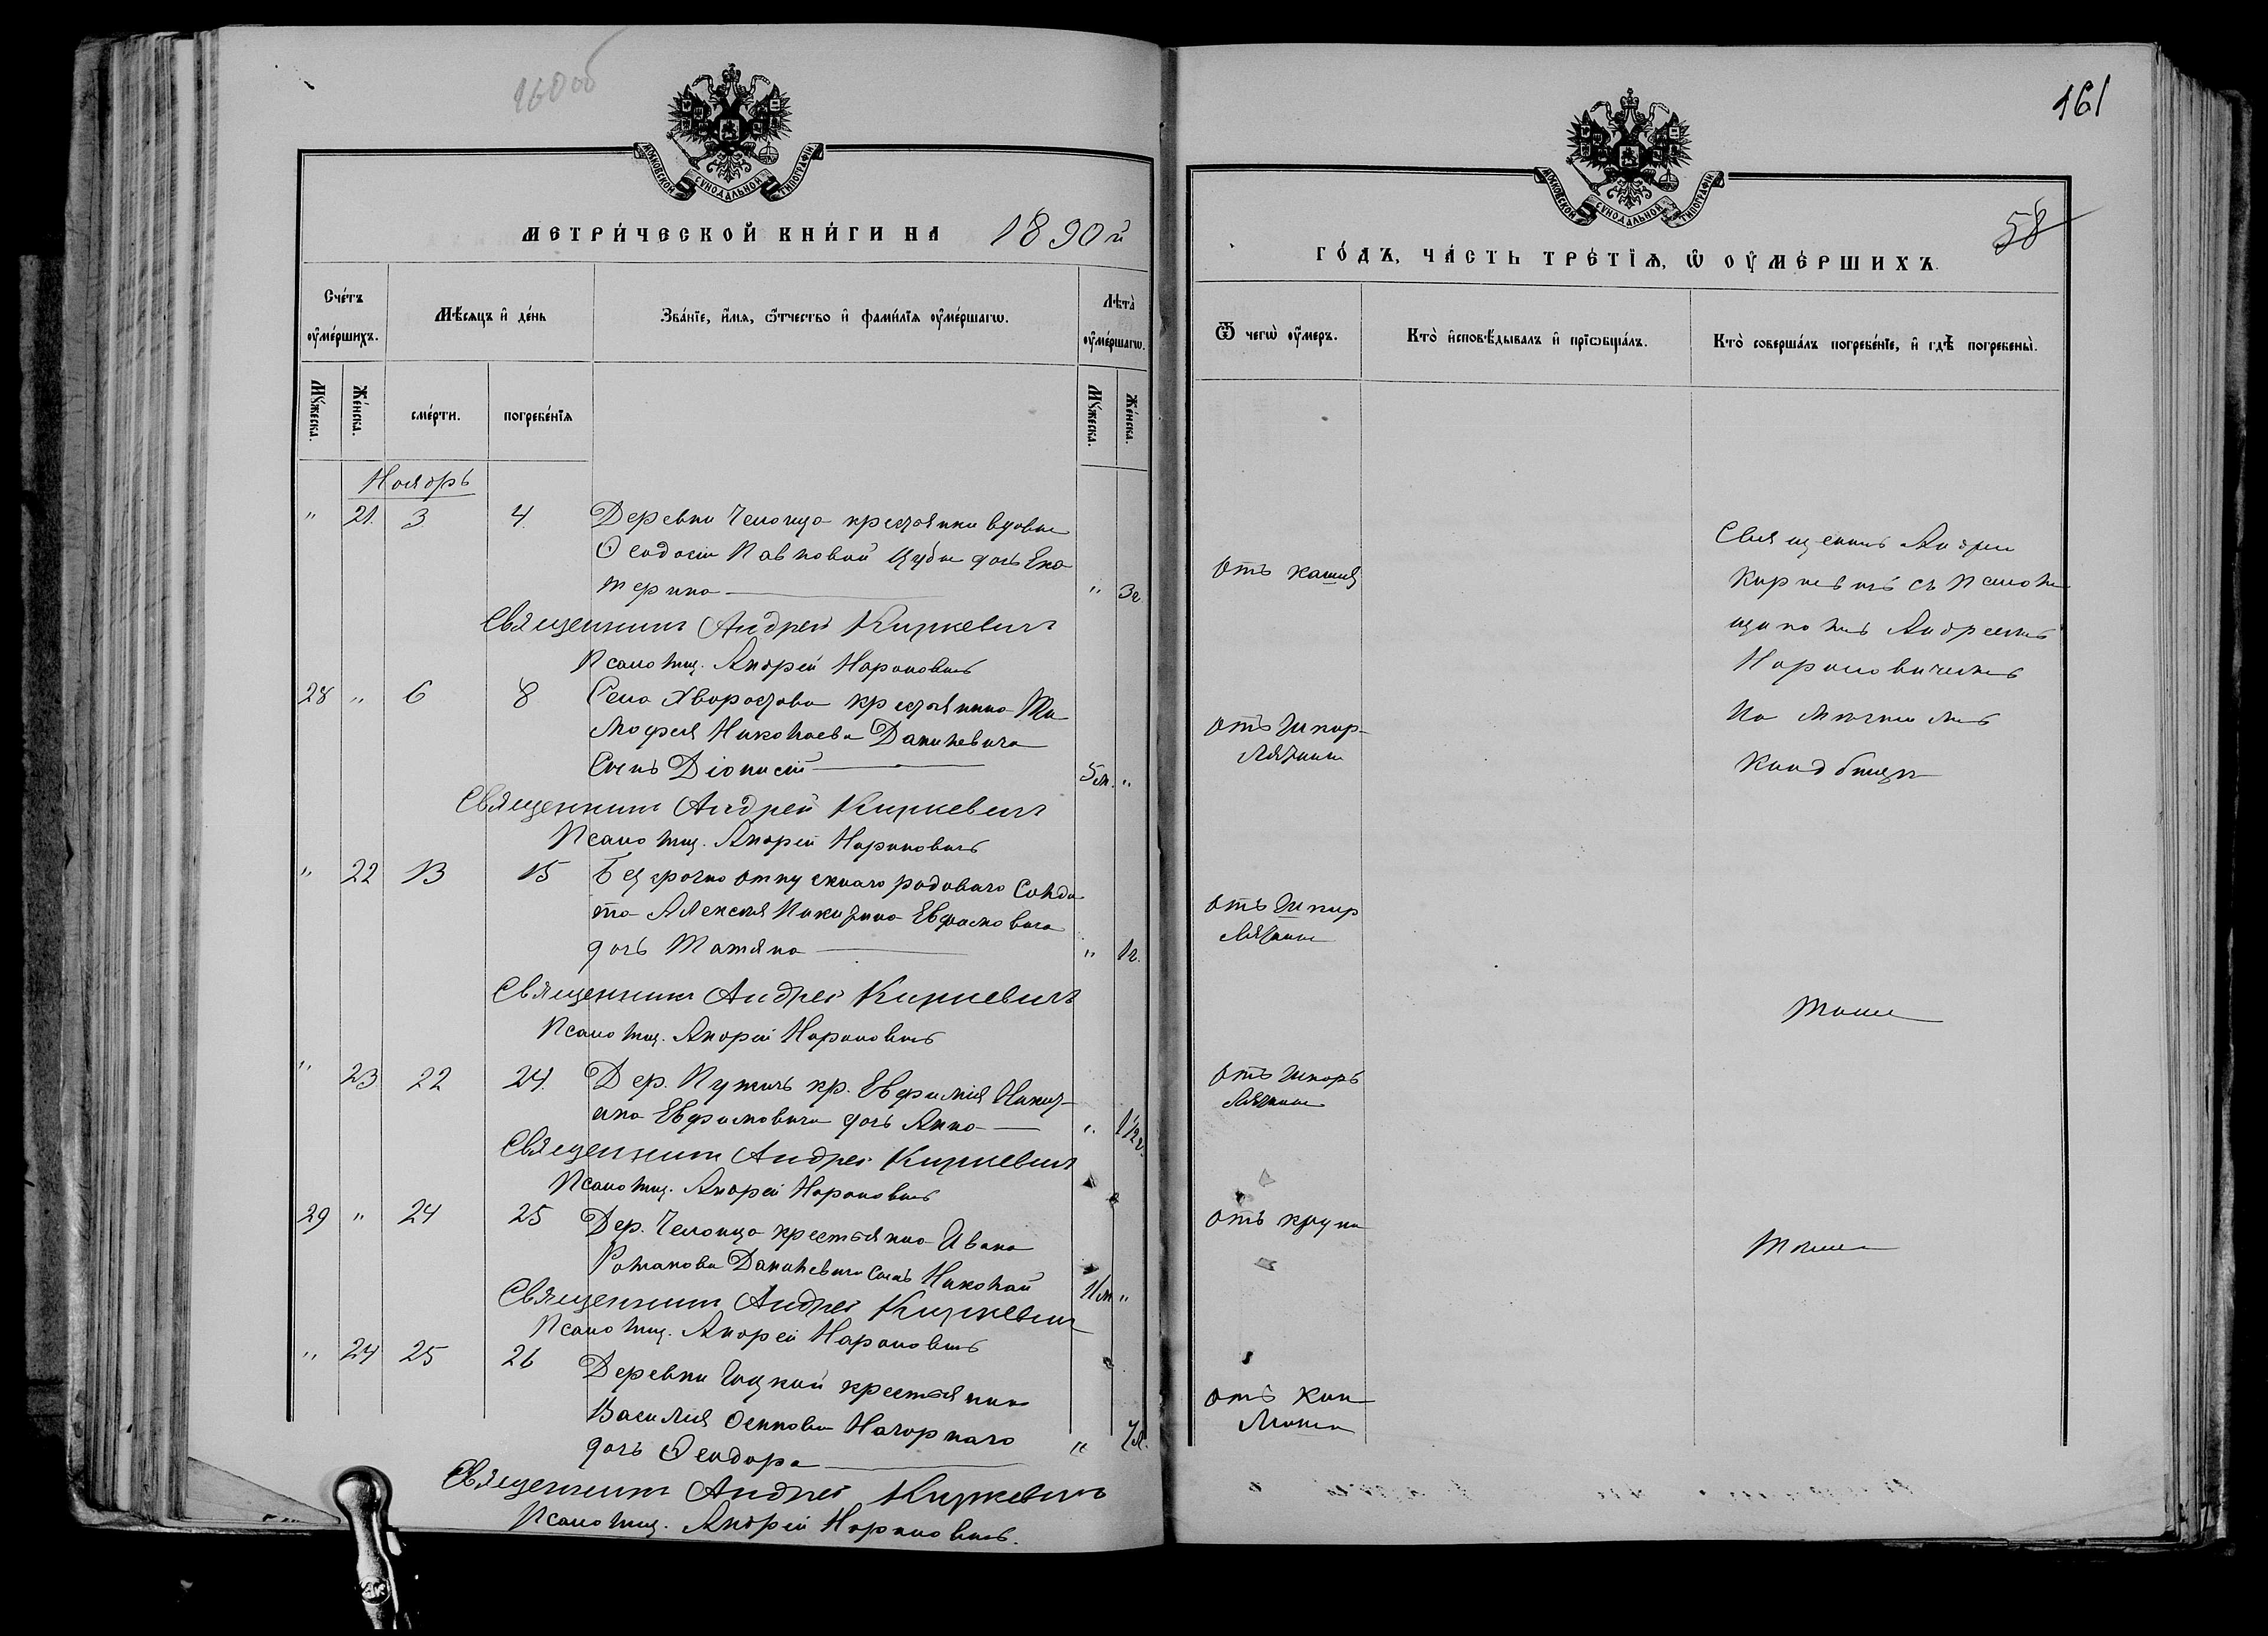 160об
МОСКОВСКОЙ СУНОДАЛЬНОЙ ТИПОГРАФІИ
МЕТРИ́ЧЕСКОЙ КНИ́ГИ НА 1890й
Сче́тъ ᲂу҆ме́ршихъ.
Мѣ́сяцъ и҆ де́нь
Зва́нїе, и҆́мя, ѻ҆́тчество и҆ фами́лїя ᲂу҆ме́ршагѡ.
Лѣта̀ ᲂу҆ме́ршагѡ.
Мꙋ́жеска.
Же́нска.
сме́рти.
погребе́нїя
Мꙋ́жеска.
Же́нска.
Ноябрь
" 21. 3 4 Деревни Челонца крестьянки вдовы
Ѳеодосіи Павловой дочь Ека
терина " 3г.
Священникъ Андрей Киркевичъ
Псаломщ. Андрей Нароновичъ
28 " 6 8 Села Хворостова крестьянина Ти
мофея Николаева Данилевича
Сынъ Діонисій 5м. "
Священникъ Андрей Киркевичъ
Псаломщ. Андрей Нароновичъ
" 22 13 15 Безсрочно отпускнаго рядоваго Солда
та Алексея Никитина Ефимовича
дочь Татяна " 1г.
Священникъ Андрей Киркевичъ
Псаломщ. Андрей Нароновичъ
" 23 22 24. Дер. кр. Евфимія Никит-
ина Евфимовича дочь Анна " 1½г.
Священникъ Андрей Киркевичъ
Псаломщ. Андрей Нароновичъ
29 " 24 25 Дер. Челонца крестьянина Ивана
Романова Данилевича Сынъ Николай 11м "
Священникъ Андрей Киркевичъ
Псаломщ. Андрей Нароновичъ
" 24 25 26 Деревни Гоцкой крестьянина
Василія Осипова Нагорнаго
дочь Ѳеодора "
Священникъ Андрей Киркевичъ
Псаломщ. Андрей Нароновичъ.
161
МОСКОВСКОЙ СУНОДАЛЬНОЙ ТИПОГРАФІИ
58
ГО́ДЪ, ЧА́СТЬ ТРЕ́ТЇѦ, Ѡ҆ ОУ҆МЕ́РШИХЪ.
Ѿ чегѡ̀ ᲂу҆́меръ.
Кто̀ и҆сповѣ́дывалъ и҆ прїѡбща́лъ.
Кто̀ соверша́лъ погребе́нїе, и҆ гдѣ̀ погребены̀.
отъ кашля
Священникъ Андрей
Киркевичъ съ Псалом
щикомъ Андреемъ
Нароновичемъ
На мѣстномъ
Кладбищѣ
отъ шкар-
лятины
отъ шкар
лятины
Тоже
отъ шкар
лятины
отъ крупа
Тоже
отъ Кок-
люша